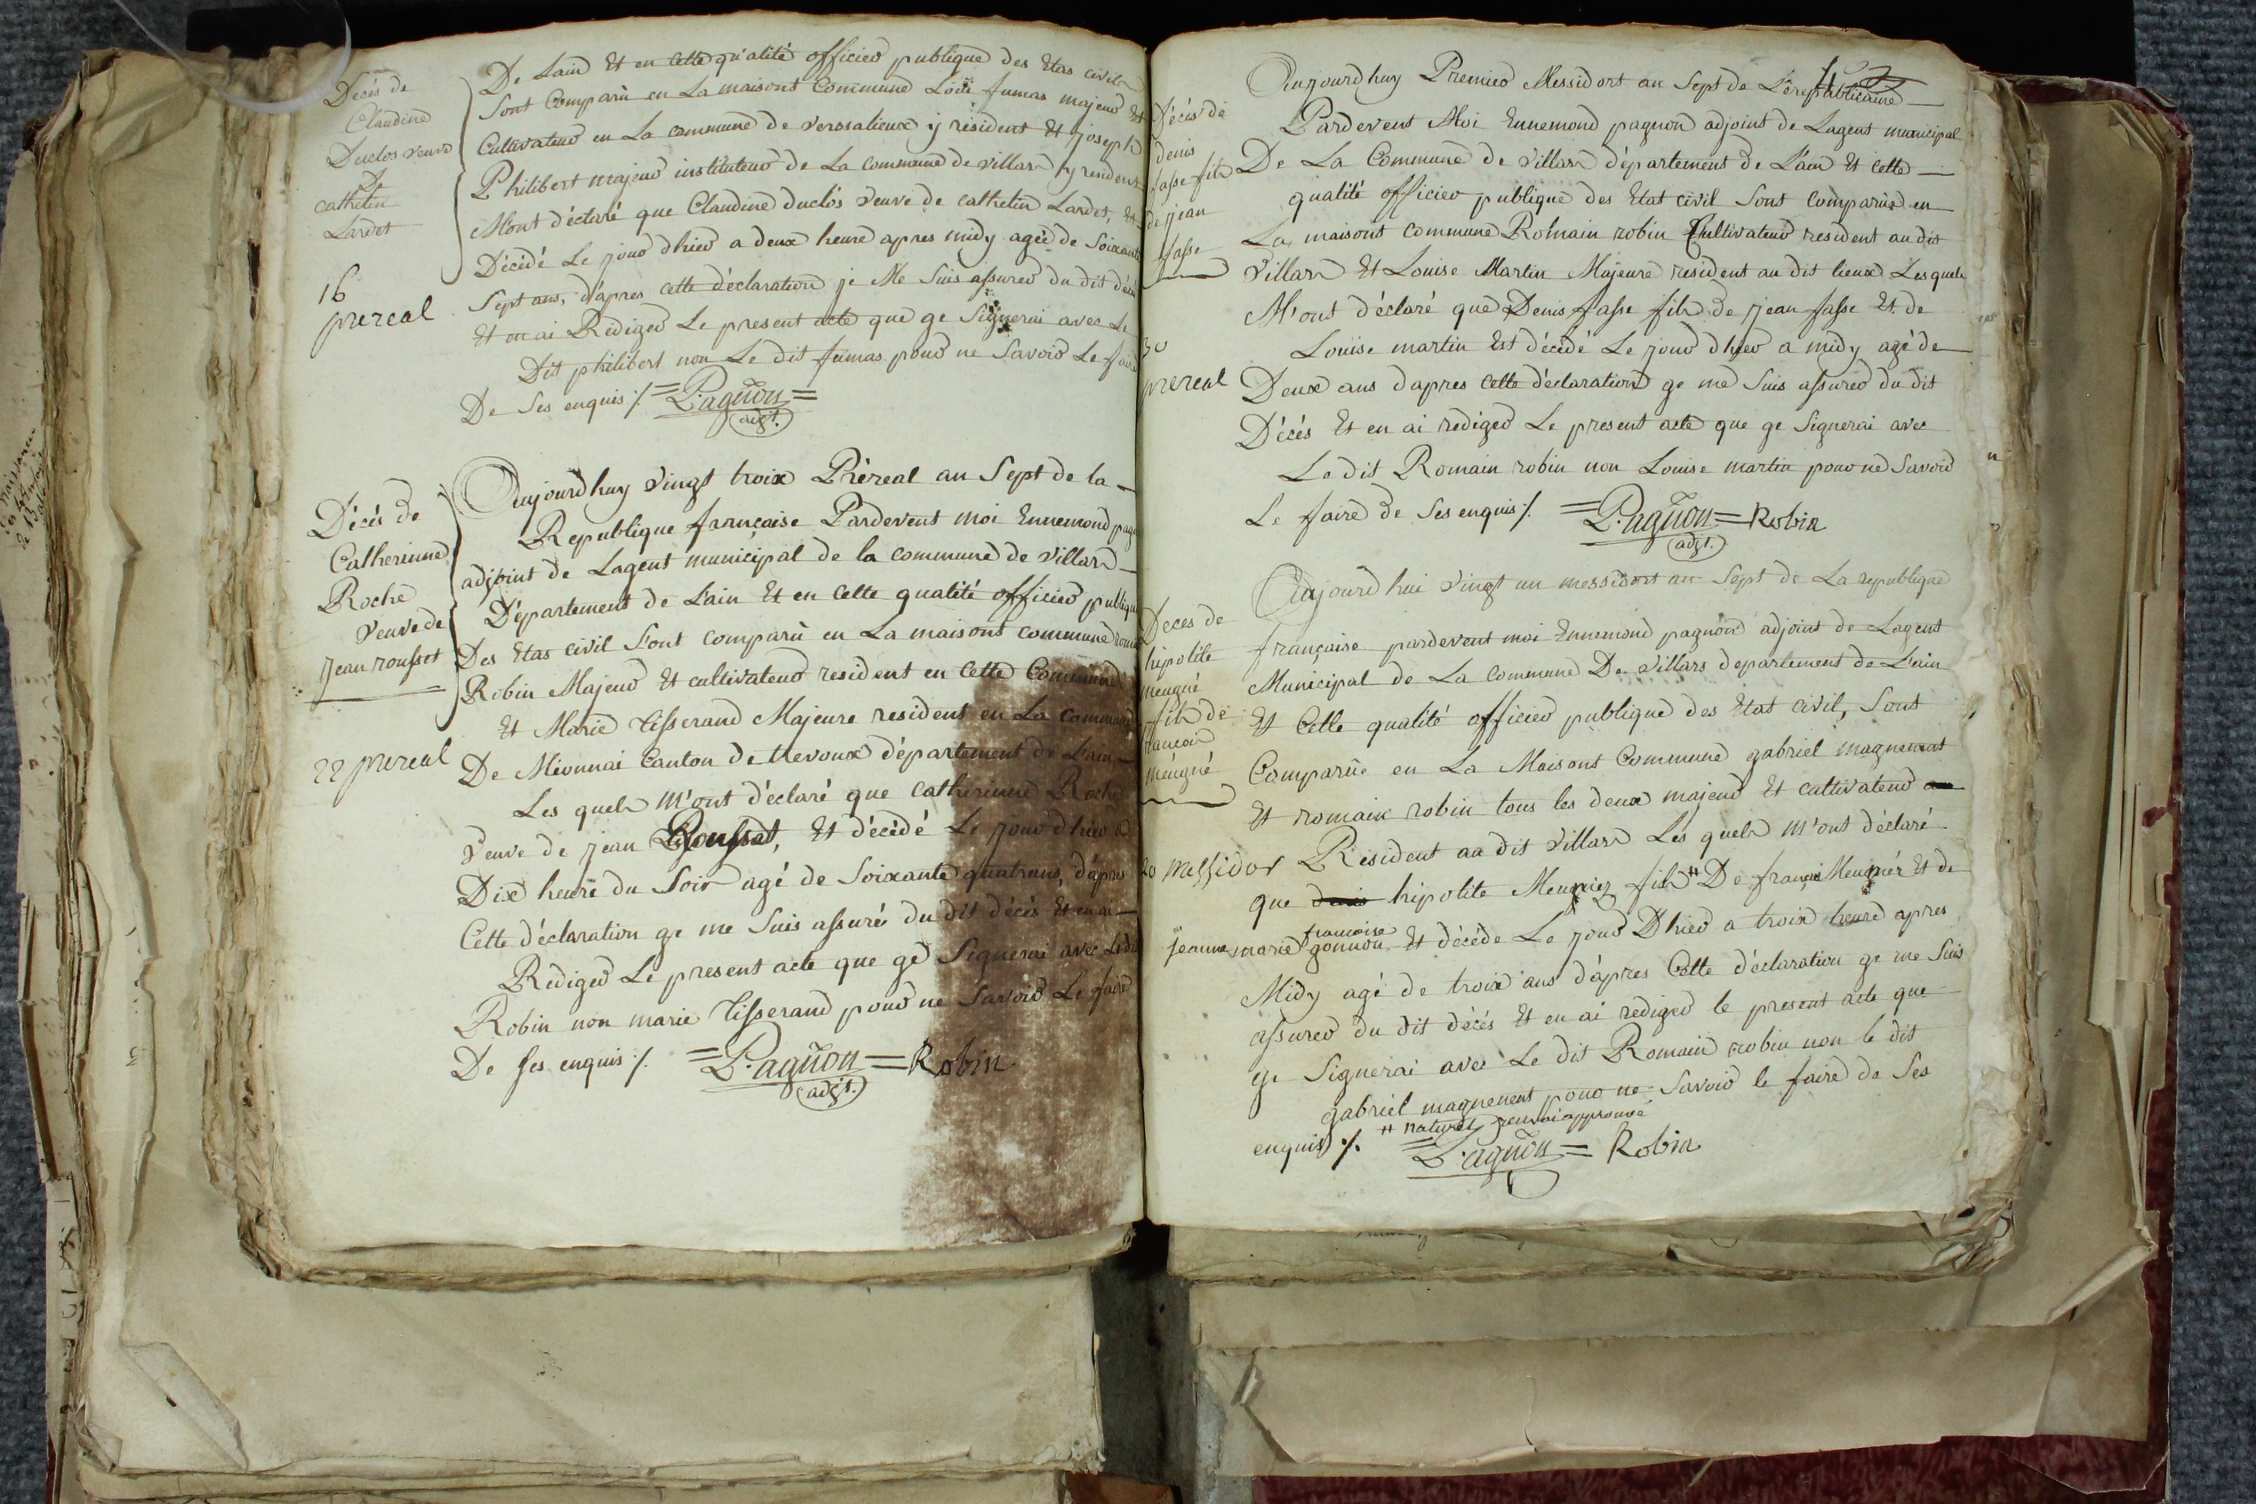 Décès de
Claudine
Duclos veuve
de
cathelin
Lardet
16
prereal
De Lain Et en Cette qualité officier publique des Etas civils
Sont Comparû en La maisont Commune Loüi fumas majeur Et
Cultivateur en La commune de versalieux y résident Et joseph
Philibert majeur instituteur de La commune de villars y resident
Mont déclaré que Claudine duclós veuve de cathelin Lardet, Et
Décédé Le jour dhier a deux heure apres midy agée de Soixante
Sept ans, d'apres cette déclaration je Me Suis assurer du dit décés
Et en ai Rédiger Le present acte que ge Signerai avec Le
Dit philibert non Le dit fumas pour ne Savoir Le faire
De Ses enquis ⁒ =Pagñon=
adjt.
Décés de
Catherinne
Roche
veuve de
jean rousset
22 prereal
Aujourdhuy vingt troix Préreal an Sept de la
Republique française Pardevent moi Ennemond pagnon
adjoint de Lagent municipal de la commune de villars
Département de L'ain Et en Cette qualité officier publique
Des Etas civil Sont comparû en La maisont commune romain
Robin Majeur Et cultivateur resident en Cette Commune
Et Marie Tisserand Majeure resident en La commune
De Mionnai Canton de trevoux département de L'ain
Les quels M'ont déclaré que catherinne Roche
veuve de jean Rousset, Et décédé Le jour dhier a
Dix heure du Soir agé de Soixante quatrans, d'apres
Cette déclaration ge me Suis assuré du dit décés Et en ai
Rediger Le present acte que ge Signerai avec Le dit
Robin non marie Tisserand pour ne Savoir Le faire
De Ses enquis ⁒ =Pagñon= Robin
adjt.
Décés de
denis
fasse fils
de jean
fasse
30
prereal
Aujourdhuy Premier Messidort an Sept de L'érepublicaine
Pardevent Moi Ennemond pagnon adjoint de Lagent municipal
De La Commune de villars département de L'ain Et Cette
qualité officier publique des Etat civil Sont Comparûs en
La maisont commune Romain robin Cultivateur resident au dit
villars Et Louise Martin Majeure resident au dit lieux Lesquels
M'ont déclaré que Denis fasse fils de jean fasse Et de
Louise martin Est décédé Le jour dhier a midy agé de
Deux ans dapres cette déclaration ge me Suis assurer du dit
Décés Et en ai rediger Le present acte que ge Signerai avec
Le dit Romain robin non Louise martin pour ne Savoir
Le faire de Ses enquis ⁒ =Pagñon= Robin
adjt.
Deces de
hipolite
meugné
fils de
francoir
meúgné
20 Messidor
Aujourd hui vingt un messidort an Sept de La republique
française pardevent moi Ennemond pagnon adjoint de Lagent
Municipal de La Commune De villars departement de L'ain
Et Cette qualité officier publique des Etat civil, Sont
Comparûe en La Maisont Commune gabriel magnenent
Et romain robin tous les deux majeur Et cultivateur au
Résident au dit villars Les quels M'ont déclaré
que denis hipolite Meugniez fils # De françois Meugnér Et de
jeanne marie françoise gonnon Et décéde Le jour Dhier a troix heure apres
Midy agé de troix ans d'apres Cette déclaration ge me Suis
assurer du dit décés Et en ai rediger le present acte que
ge Signerai avec Le dit Romain robin non le dit
gabriel magnenent pour ne Savoir le faire de Ses
# naturel renvoi approuvé
enquis ⁒ =Pagñon= Robin